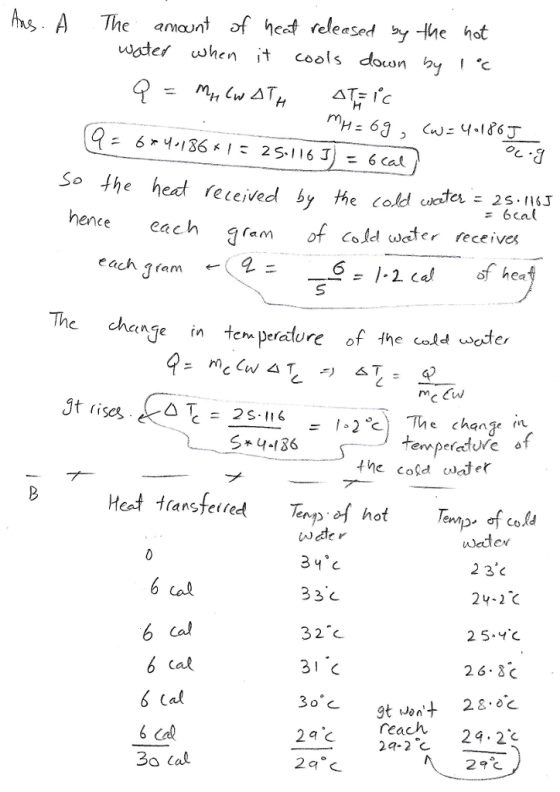 Ans. A The amount of heat released by the hot
water when it cools down by 1 °C
Q = mH Cw ΔTH ΔTH = 1°C
mH = 6g, Cw = 4.186 J/°C.g
Q = 6 * 4.186 * 1 = 25.116 J = 6 cal
So the heat received by the cold water = 25.116J
= 6cal
hence each gram of cold water receives
each gram ← q = 6/5 = 1.2 cal of heat
The change in temperature of the cold water
Q = mc Cw ΔTc => ΔTc = Q/mc Cw
It rises. ← ΔTc = 25.116/5*4.186 = 1.2°C The change in
temperature of
the cold water
B
Heat transferred Temp. of hot water Temp. of cold water
0 34°C 23°C
6 cal 33°C 24.2°C
6 cal 32°C 25.4°C
6 cal 31°C 26.8°C
6 cal 30°C 28.0°C
6 cal 29°C It won't reach 29.2°C 29.2°C
30 cal 29°C 29°C